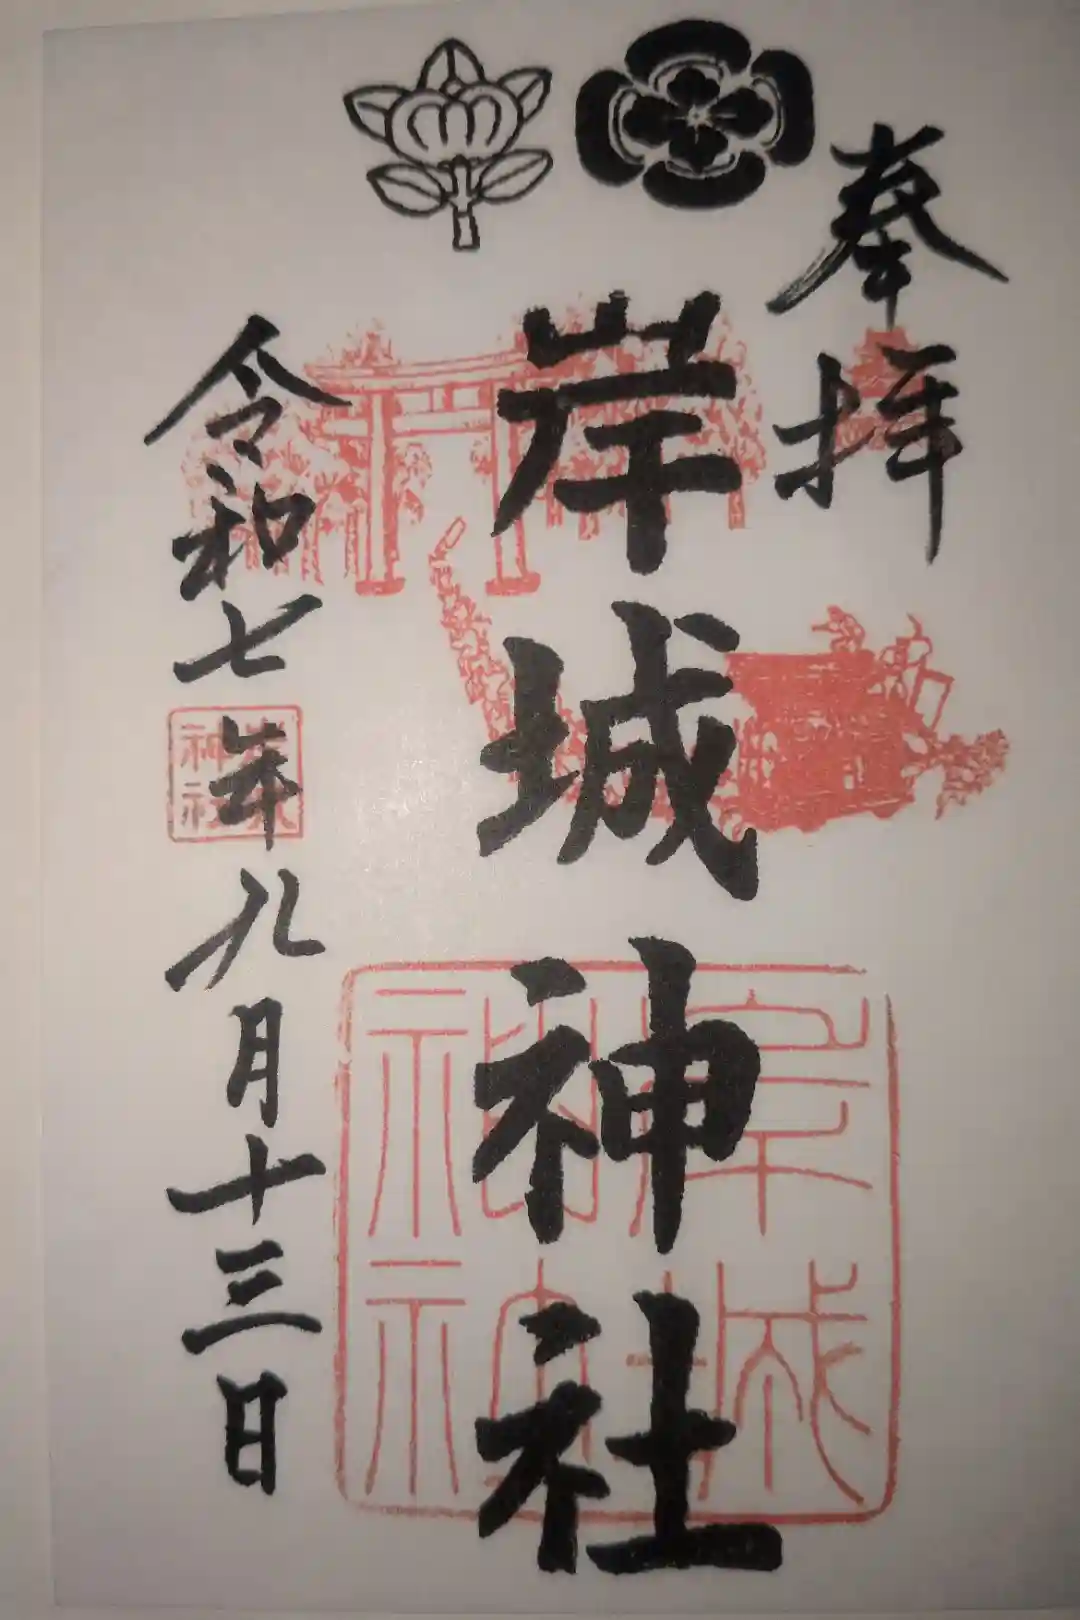 奉拝
岸城神社
令和七年九月十三日
岸城
神社